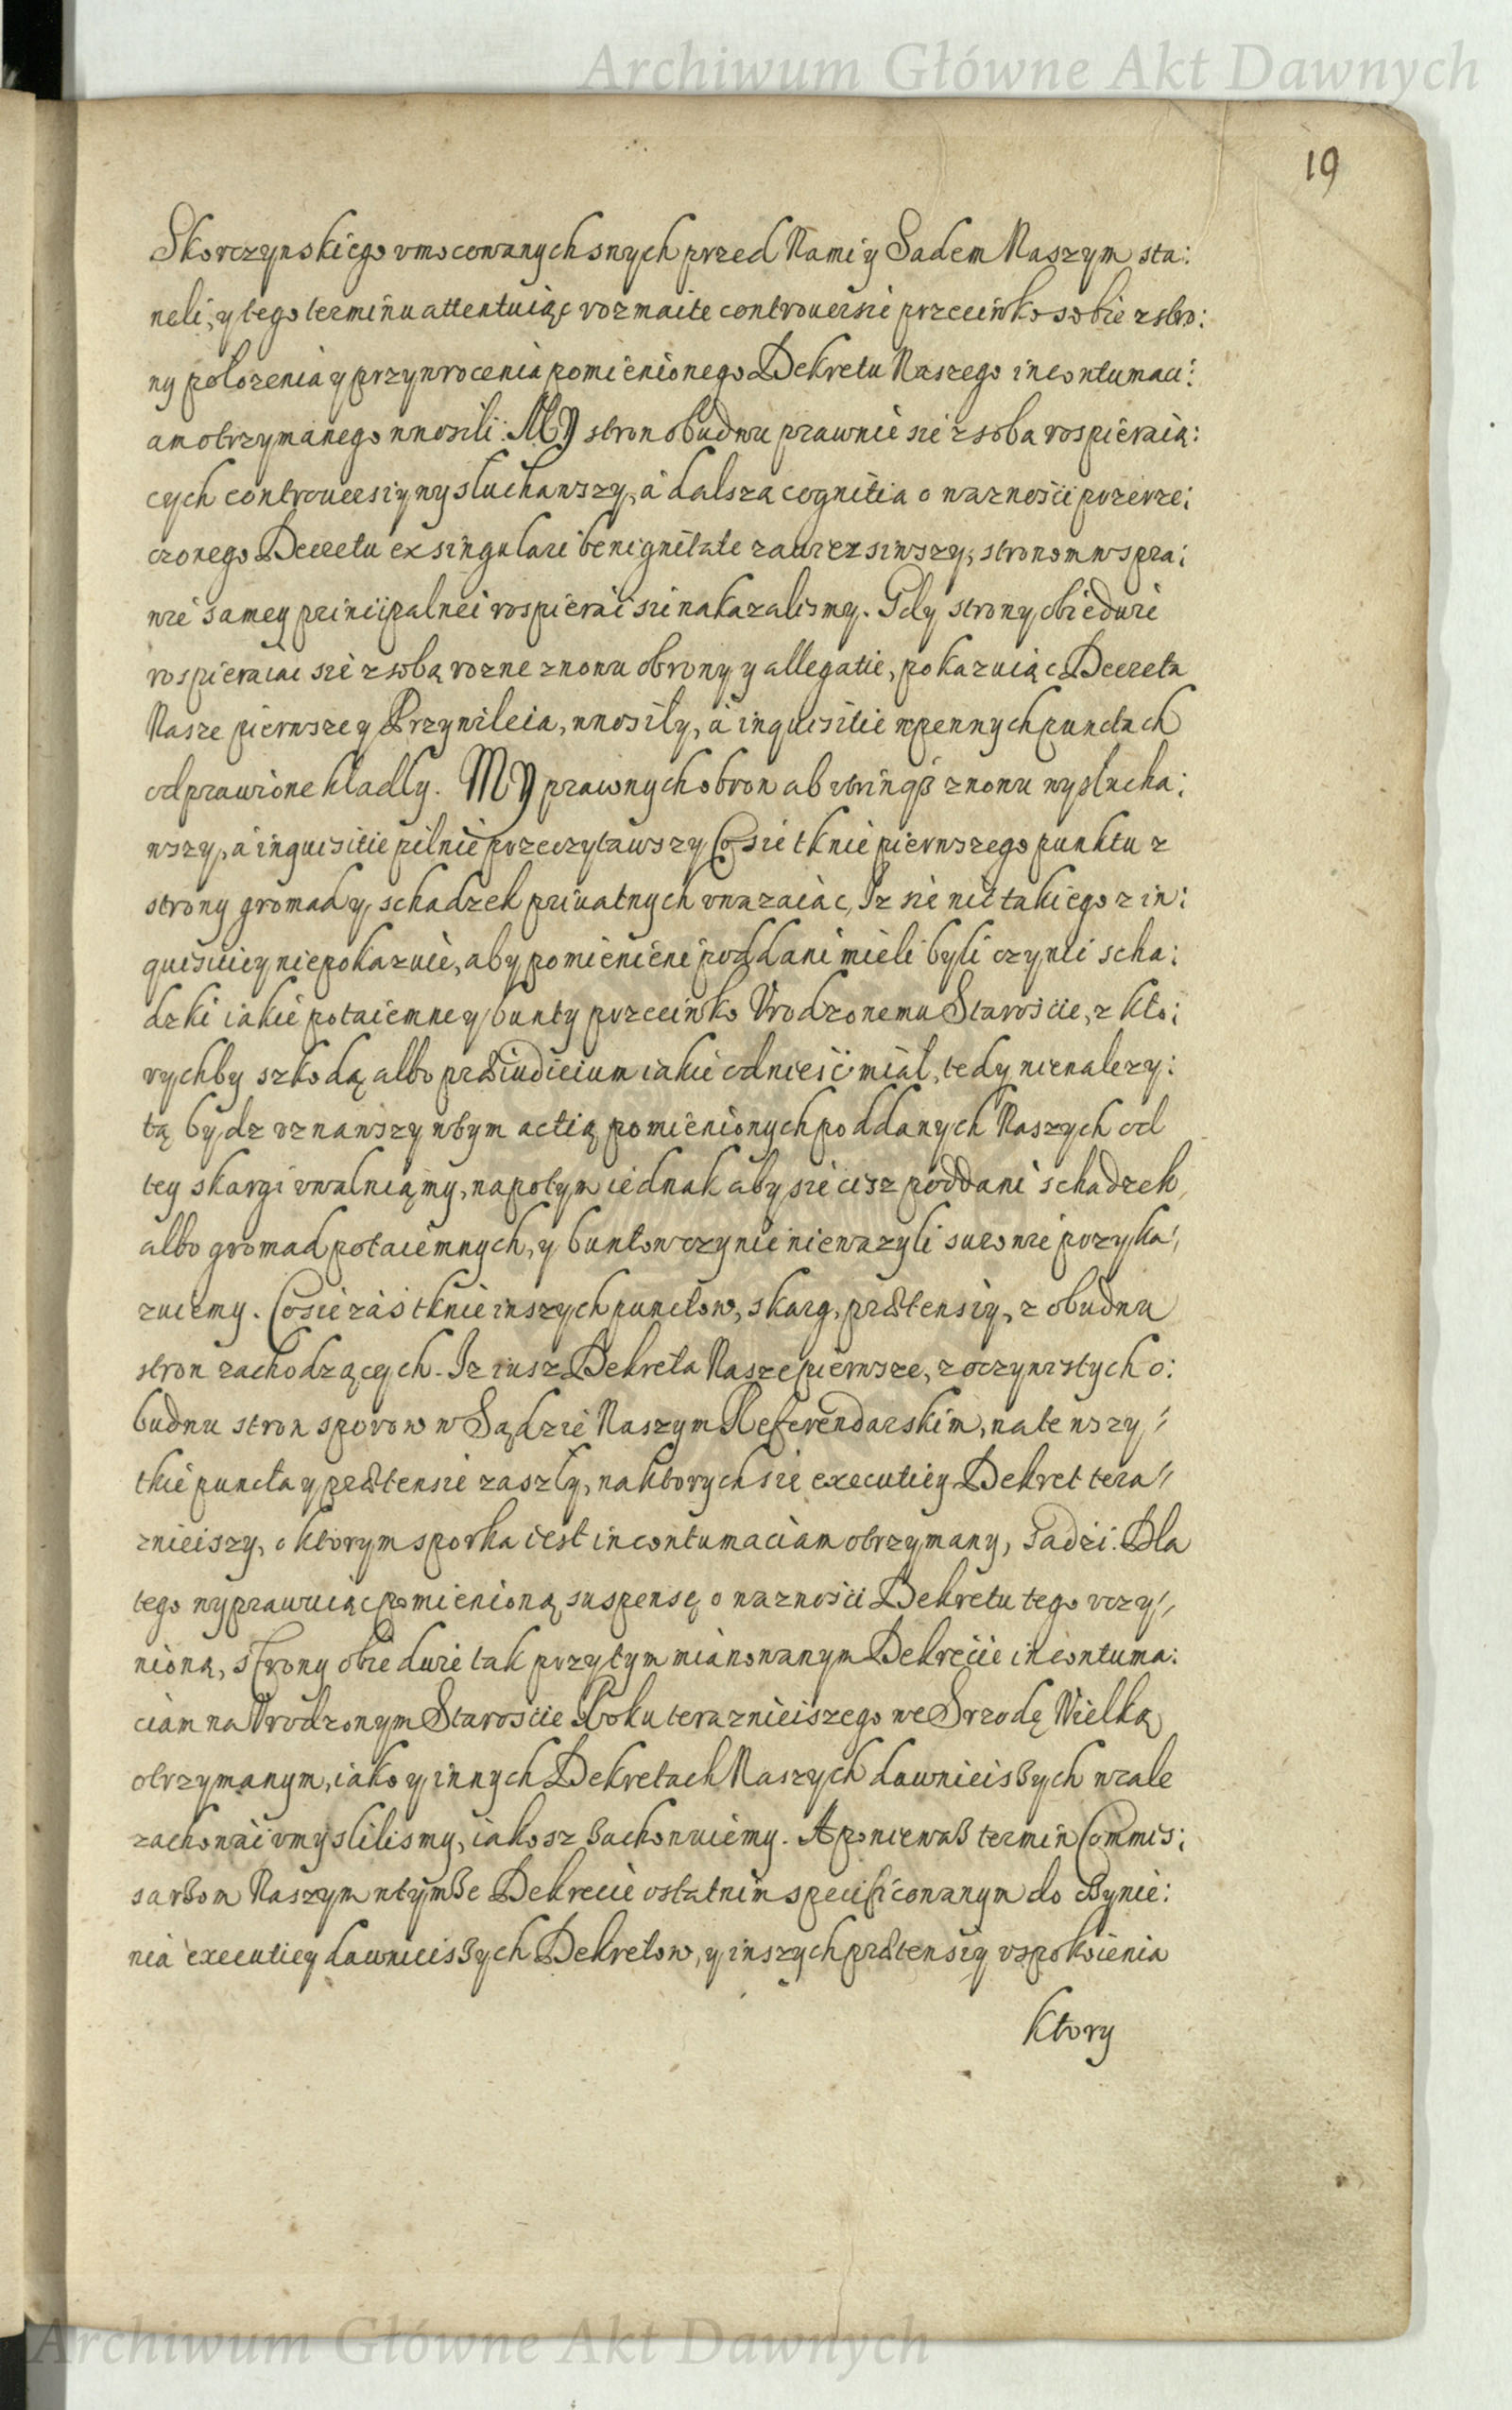 Archiwum Główne Akt Dawnych
19
Skorczynskiego vmocowanych onych przed Nami y Sadem Naszym sta:
neli, y tego terminu attentuiąc rozmaite controuersie przeciwko sobie z stro:
ny połozenia y przywrocenia pomienionego Dekretu Naszego in contumaci:
am otrzymanego wnosili. MY stron obudwu prawnie sie z soba rospieraią:
cych controuersiy wysłuchawszy, a dalsza cognitia o waznosci przerze:
czonego Decretu ex singulari benignitate zawiezsiwszy, stronom w spra:
wie samey principalnei rospierać sie nakazalismy. Gdy strony obiedwie
rospieraiac sie z sobą rozne znowu obrony y allegatie, pokazuiąc Decreta
Nasze pierwsze y Przywileia, wnosiły, a inquisitie w pewnych punctach
odprawione kładły. MY prawnych obron ab utrinq3 znowu wysłucha:
wszy, a inquisitie pilnie przeczytawszy Co sie tknie pierwszego punktu z
strony gromad y schadzek priuatnych vwazaiąc, Iz sie nic takiego z in:
quisiciey niepokazuie, aby pomienieni poddani mieli byli czynić scha:
dzki iakie potaiemne y bunty przeciwko Vrodzonemu Staroscie, z kto:
rychby szkodą albo præiudicium iakie odnieść miał, tedy nienalezy:
tą bydz vznawszy w tym actią pomienionych poddanych Naszych od
tey skargi vwalniąmy, napotym iednak aby sie cisz poddani schadzek
albo gromad potaiemnych, y buntow czynić nie wazyli surowie przyka:
zuiemy. Co sie zaś tknie inszych punctow, skarg, prætensiy, z obudwu
stron zachodzących. Iz iusz Dekreta Nasze pierwsze, z oczywistych o:
budwu stron sporow w Sądzie Naszym Referendarskim, na te wszy:
tkie puncta y prætensie zaszły, na ktorych sie executiey Dekret tera:
znieiszy, o ktorym sporka iest in contumaciam otrzymany, sadzi. Dla
tego wyprawuiąc pomienioną suspensę o waznosci Dekretu tego vczy:
nioną, strony obiedwie tak przytym mianowanym Dekrecie in contuma:
ciam na Vrodzonym Staroscie Roku teraznieiszego we Srzodę Wielką
otrzymanym, iako y innych Dekretach Naszych dawnieiszych wcale
zachowaći vmyslilismy, iakosz zachowuiemy. A poniewasz termin Commis:
sarzom Naszym w tymze Dekrecie ostatnim specificowanym do czynie:
nia executiey dawnieiszych Dekretow, y inszych prætensiy vspokoienia
ktory
Archiwum Główne Akt Dawnych